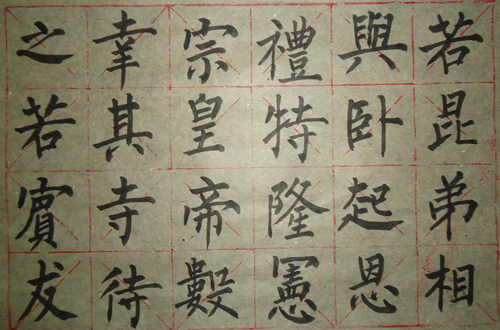 若昆弟相
與卧起恩
禮特隆憲
宗皇帝數
幸其寺待
之若賓友